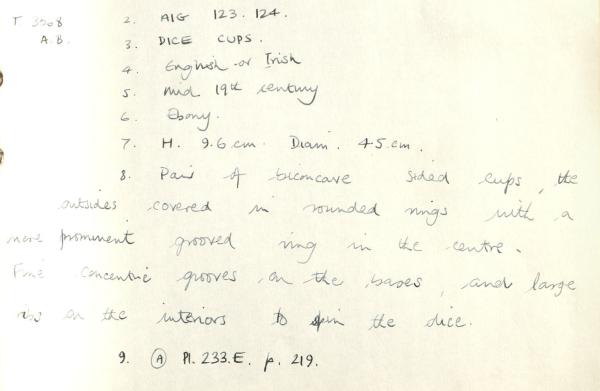 T 3568 2. AIG 123. 124.
A.B. 3. DICE CUPS.
4. English or Irish
5. Mid 19th century
6. Ebony.
7. H. 9.6.cm. Diam. 4.5.cm.
8. Pair of biconcave sided cups, the
outsides covered in rounded rings with a
more prominent grooved ring in the centre.
Fine concentric grooves on the bases, and large
ribs on the interiors to spin the dice.
9. A Pl. 233.E. p. 219.